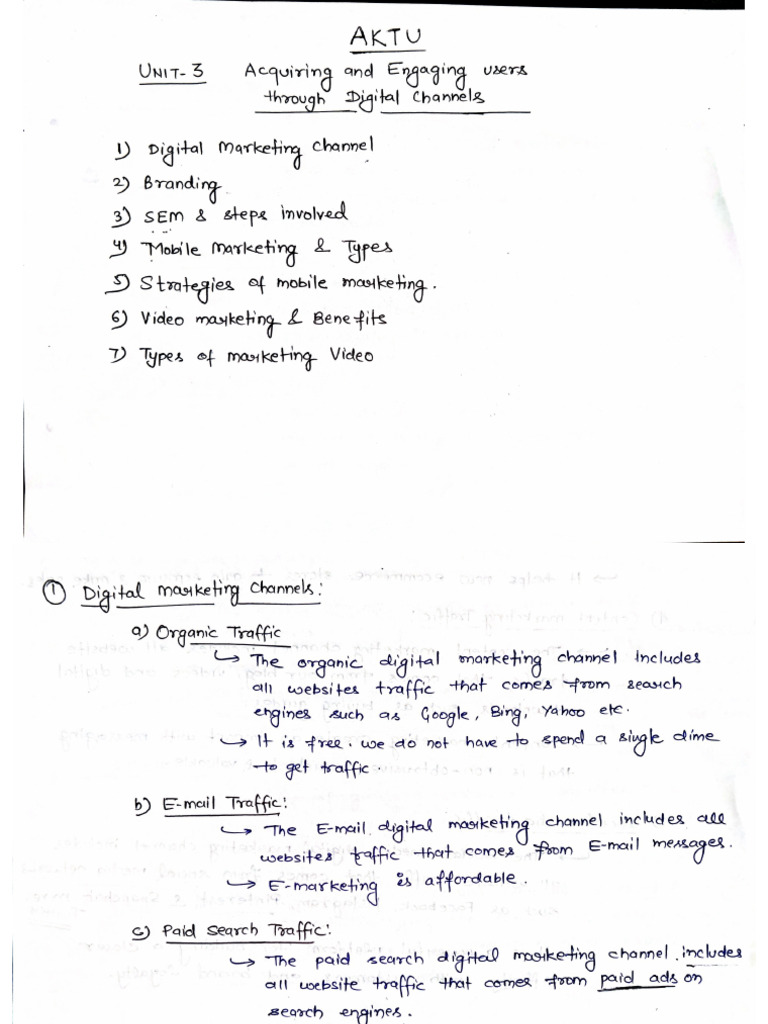 AKTU
UNIT-3 Acquiring and Engaging users
through Digital Channels
1) Digital Marketing Channel
2) Branding
3) SEM & steps involved
4) Mobile Marketing & Types
5) Strategies of mobile marketing.
6) Video marketing & Benefits
7) Types of marketing Video
① Digital Marketing Channels:
a) Organic Traffic
↳ The organic digital marketing channel includes
all websites traffic that comes from search
engines such as Google, Bing, Yahoo etc.
↳ It is free. we do not have to spend a single dime
to get traffic.
b) E-mail Traffic:
↳ The E-mail digital marketing channel includes all
websites traffic that comes from E-mail messages.
↳ E-marketing is affordable.
c) Paid Search Traffic:
↳ The paid search digital marketing channel includes
all website traffic that comes from paid ads on
search engines.